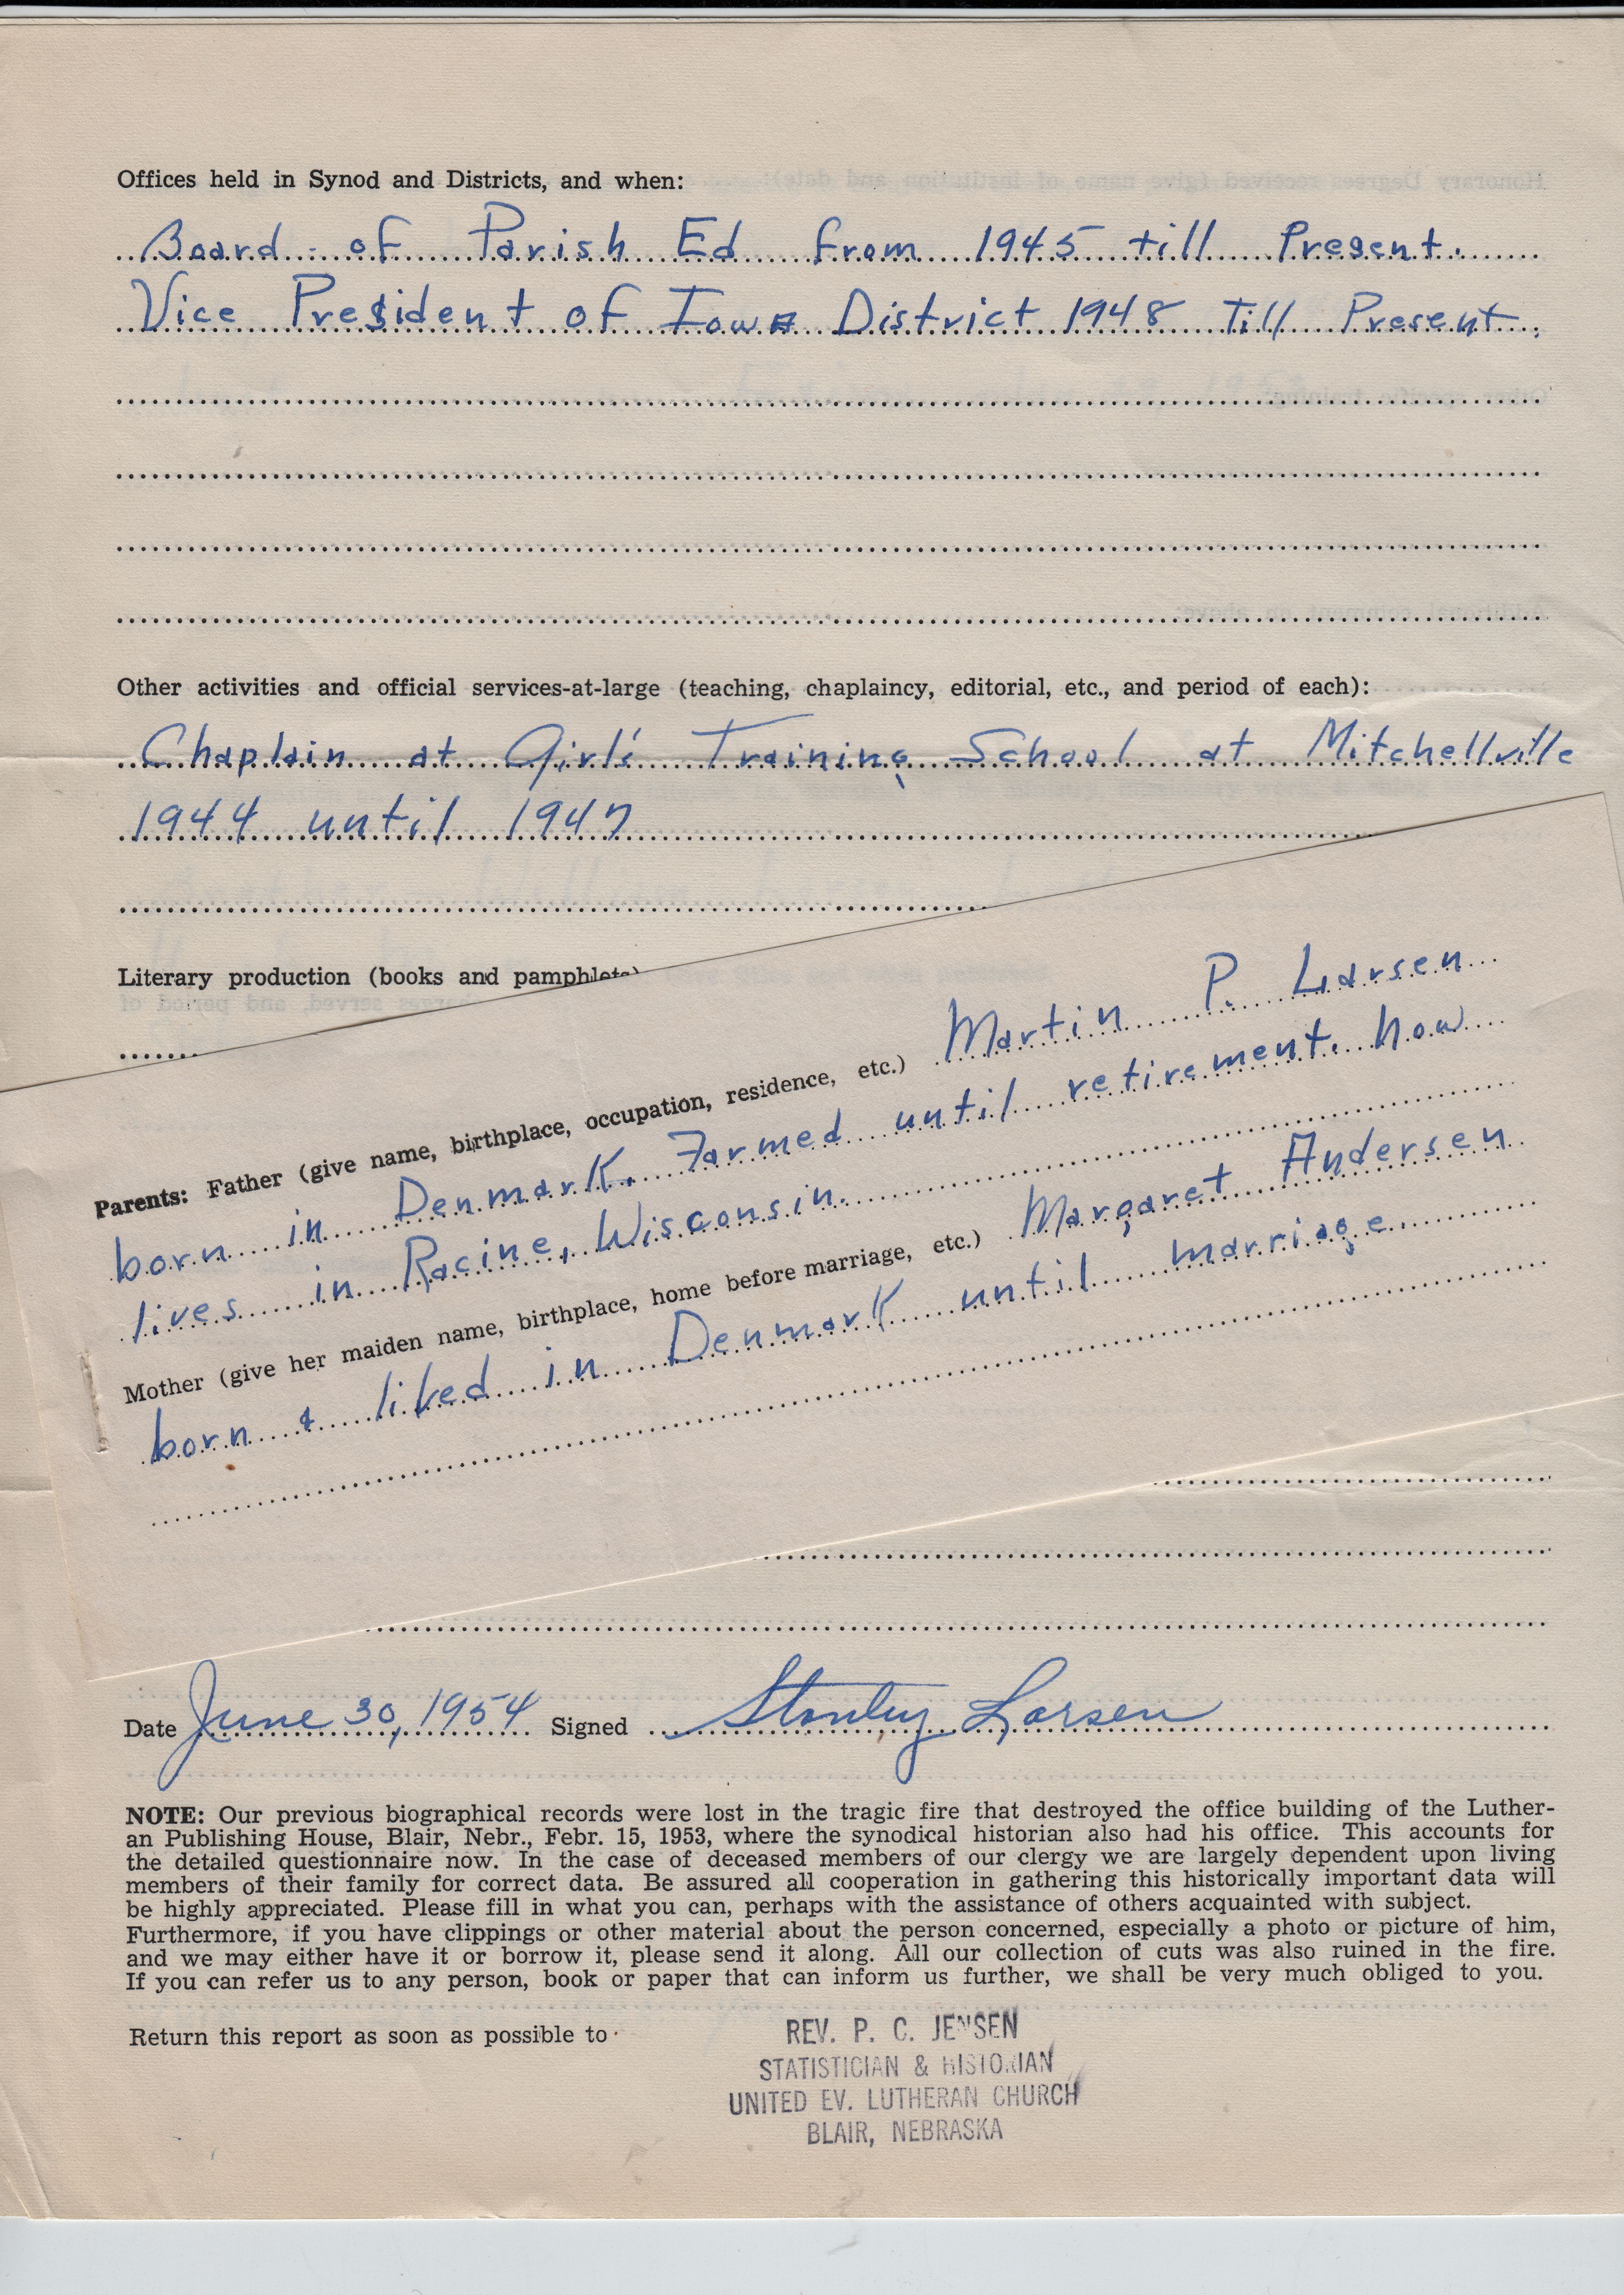 Offices held in Synod and Districts, and when:
Board of Parish Ed from 1945 till Present.
Vice President of Iowa District 1948 Till Present.
Other activities and official services-at-large (teaching, chaplaincy, editorial, etc., and period of each):
Chaplain at Girl's Training School at Mitchellville
1944 until 1947
Literary production (books and pamphlets)
Parents: Father (give name, birthplace, occupation, residence, etc.) Martin P. Larsen
born in Denmark. Farmed until retirement. Now
lives in Racine, Wisconsin.
Mother (give her maiden name, birthplace, home before marriage, etc.) Margaret Andersen
born & lived in Denmark until marriage.
Date June 30, 1954 Signed Stanley Larsen
NOTE: Our previous biographical records were lost in the tragic fire that destroyed the office building of the Luther-
an Publishing House, Blair, Nebr., Febr. 15, 1953, where the synodical historian also had his office. This accounts for
the detailed questionnaire now. In the case of deceased members of our clergy we are largely dependent upon living
members of their family for correct data. Be assured all cooperation in gathering this historically important data will
be highly appreciated. Please fill in what you can, perhaps with the assistance of others acquainted with subject.
Furthermore, if you have clippings or other material about the person concerned, especially a photo or picture of him,
and we may either have it or borrow it, please send it along. All our collection of cuts was also ruined in the fire.
If you can refer us to any person, book or paper that can inform us further, we shall be very much obliged to you.
Return this report as soon as possible to
REV. P. C. JENSEN
STATISTICIAN & HISTORIAN
UNITED EV. LUTHERAN CHURCH
BLAIR, NEBRASKA